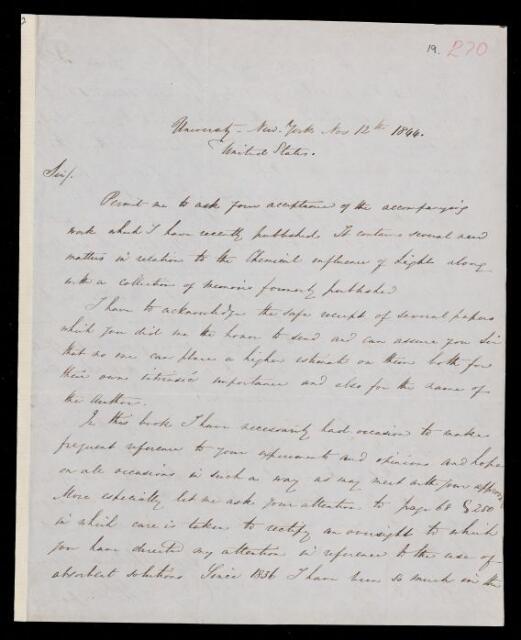 19. 270
University - New-York Nov 12th 1844.
United States.
Sir/.
Permit me to ask your acceptance of the accompanying
work which I have recently published. It contains several new
matters in relation to the Chemical influence of Light along
with a collection of Memoirs formerly published
I have to acknowledge the safe receipt of several papers
which you did me the honor to send and can assure you Sir
that no one can place a higher estimate on them both for
their own intrinsic importance and also for the name of
the Author.
In this book I have necessarily had occasion to make
frequent reference to your experiments and opinions and hope
on all occasions in such a way as may meet with your approval
More especially let me ask your attention to page 68 § 280
in which care is taken to rectify an oversight to which
you have directed my attention in reference to the use of
absorbent solutions Since 1836 I have been so much in the